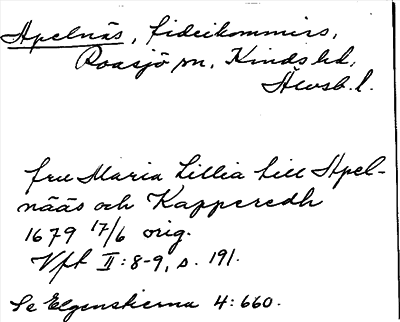 Apelnäs, fideikommiss,
Roasjö sn, Kinds hd,
Älvsb. l.
fru Maria Lillia till Apel-
näås och Kapperedh
1679 17/6 orig.
Vft II:8-9, s. 191.
Se Elgenstierna 4:660.